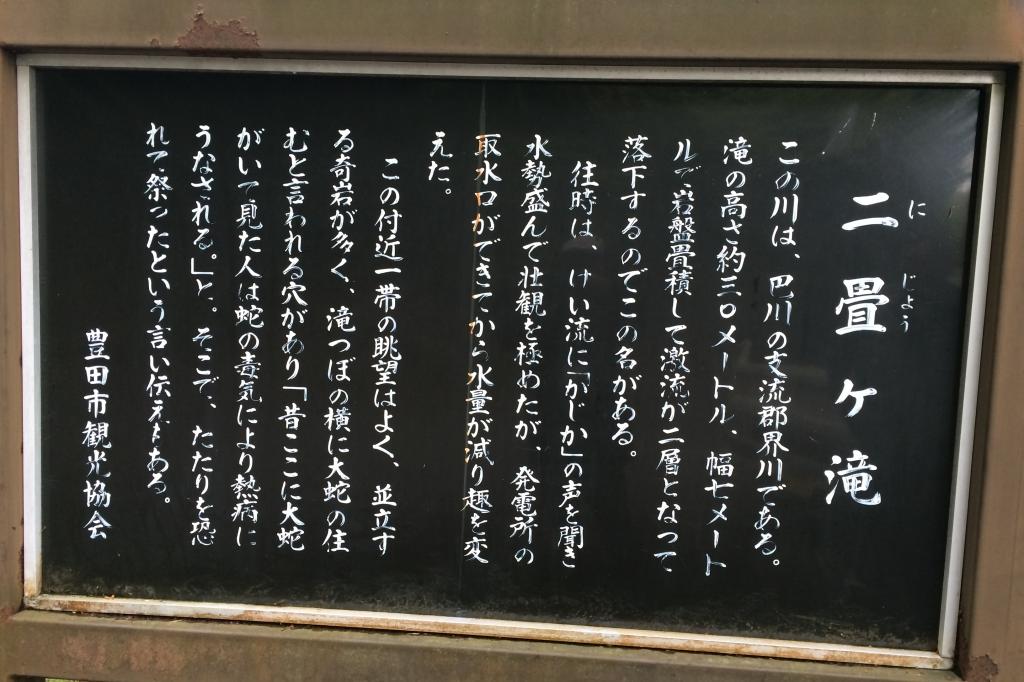 二畳ケ滝
に
じよう
この川は、巴川の支流郡界川である。
滝の高さ約三〇メートル、幅七メート
ルで岩盤畳積して激流が二層となって
落下するのでこの名がある。
往時は、けい流に「かじか」の声を聞き
水勢盛んで壮観を極めたが、発電所の
取水口ができてから水量が減り趣を変
えた。
この付近一帯の眺望はよく、並立す
る奇岩が多く、滝つぼの横に大蛇の住
むと言われる穴があり「昔ここに大蛇
がいて見た人は蛇の毒気により熱病に
うなされる。」と。そこで、たたりを恐
れて祭ったという言い伝えもある。
豊田市観光協会